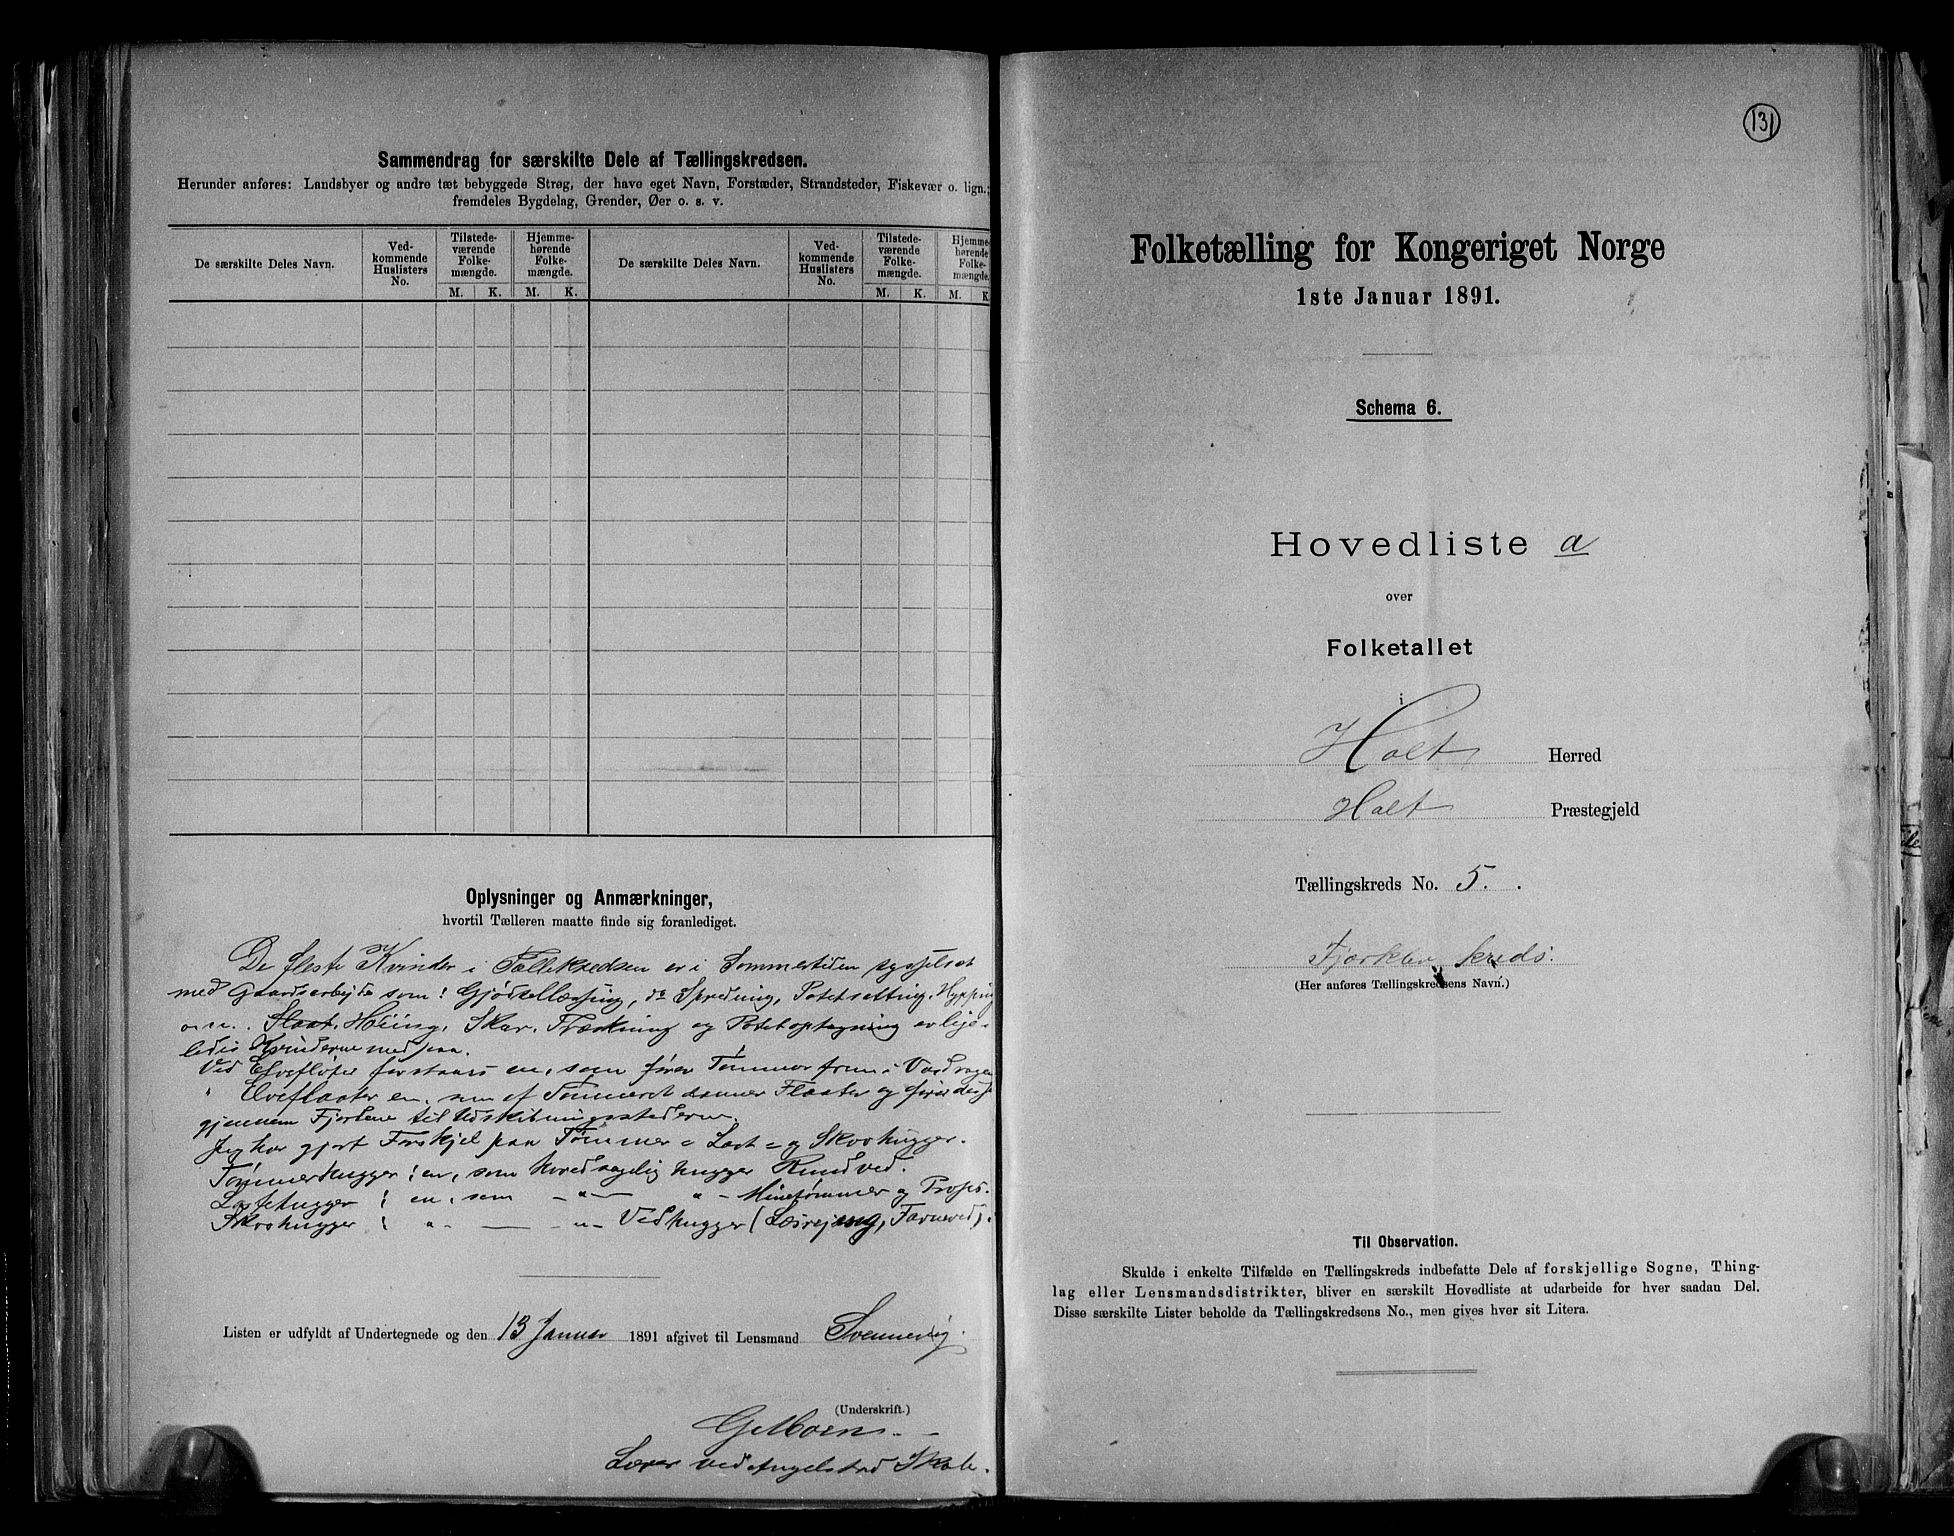 Sammendrag for særskilte Dele af Tællingskredsen.
Herunder anføres: Landsbyer og andre tæt bebyggede Strøg, der have eget Navn, Forstæder, Strandsteder, Fiskevær o. lign.;
fremdeles Bygdelag, Grender, Øer o. s. v.
De særskilte Deles Navn.
Ved-
kommende
Huslisters
No.
Tilstede-
værende
Folke-
mængde.
Hjemme-
hørende
Folke-
mængde.
De særskilte Deles Navn.
Ved-
kommende
Huslisters
No.
Tilstede-
værende
Folke-
mængde.
Hjemme-
hørende
Folke-
mængde.
M. K. M. K. M. K. M. K
Oplysninger og Anmærkninger,
hvortil Tælleren maatte finde sig foranlediget.
De fleste Kvinder i Tællekredsen er i Sommertiden sysselsat
med Gaardsarbejde som: Gjødsellæsning, do Spredning, Potetsætning, Hypping
o. s. v. Slaat, Høiing, Skar, Træskning og Potetoptagning er lige-
ledes Kvinderne med paa.
Ved Elvefløter forstaaes en, som fører Tømmer frem i Vasdragen
" Elveflaater en, som af Tømmeret danner Flaater og fører
gjennem Fjordene til Udskibningsstederne.
Jeg har gjort Forskjel paa Tømmer- Last- og Skovhugger.
Tømmerhugger : en, som hovedsagelig hugger Rundved.
Lasthugger : en, som -"- " - Minetømmer og Props.
Skovhugger : " - -"- Vedhugger (, Favneved).
Listen er udfyldt af Undertegnede og den 13 Januar 1891 afgivet til Lensmand Svennevig.
(Underskrift.)
G. Moen.
Lærer ved Angelstad Skole.
131
Folketælling for Kongeriget Norge
1ste Januar 1891.
Schema 6.
Hovedliste a
over
Folketallet
i
Holt Herred
Holt Præstegjeld
Tællingskreds No. 5.
Fjærkleiv kreds.
(Her anføres Tællingskredsens Navn.)
Til Observation.
Skulde i enkelte Tilfælde en Tællingskreds indbefatte Dele af forskjellige Sogne, Thing-
lag eller Lensmandsdistrikter, bliver en særskilt Hovedliste at udarbeide for hver saadan Del.
Disse særskilte Lister beholde da Tællingskredsens No., men gives hver sit Litera.